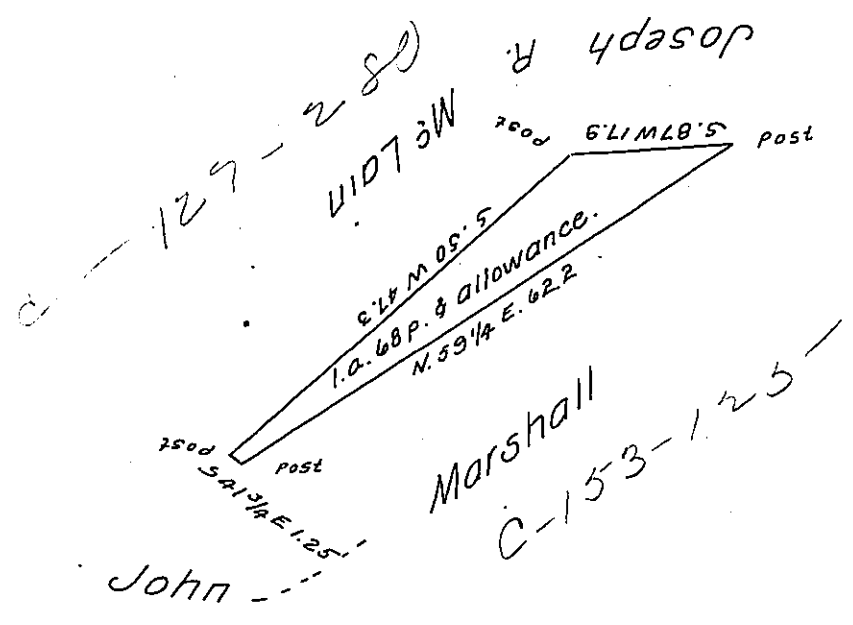 Joseph R.
McLain
C-127-280
Post
S.87W17.9
Post
S.50 W 47.3
1.a.68p. & allowance.
N.59¼ E.622
Post
Post
S 41¾ E 1.25
Marshall
C-153-125
John